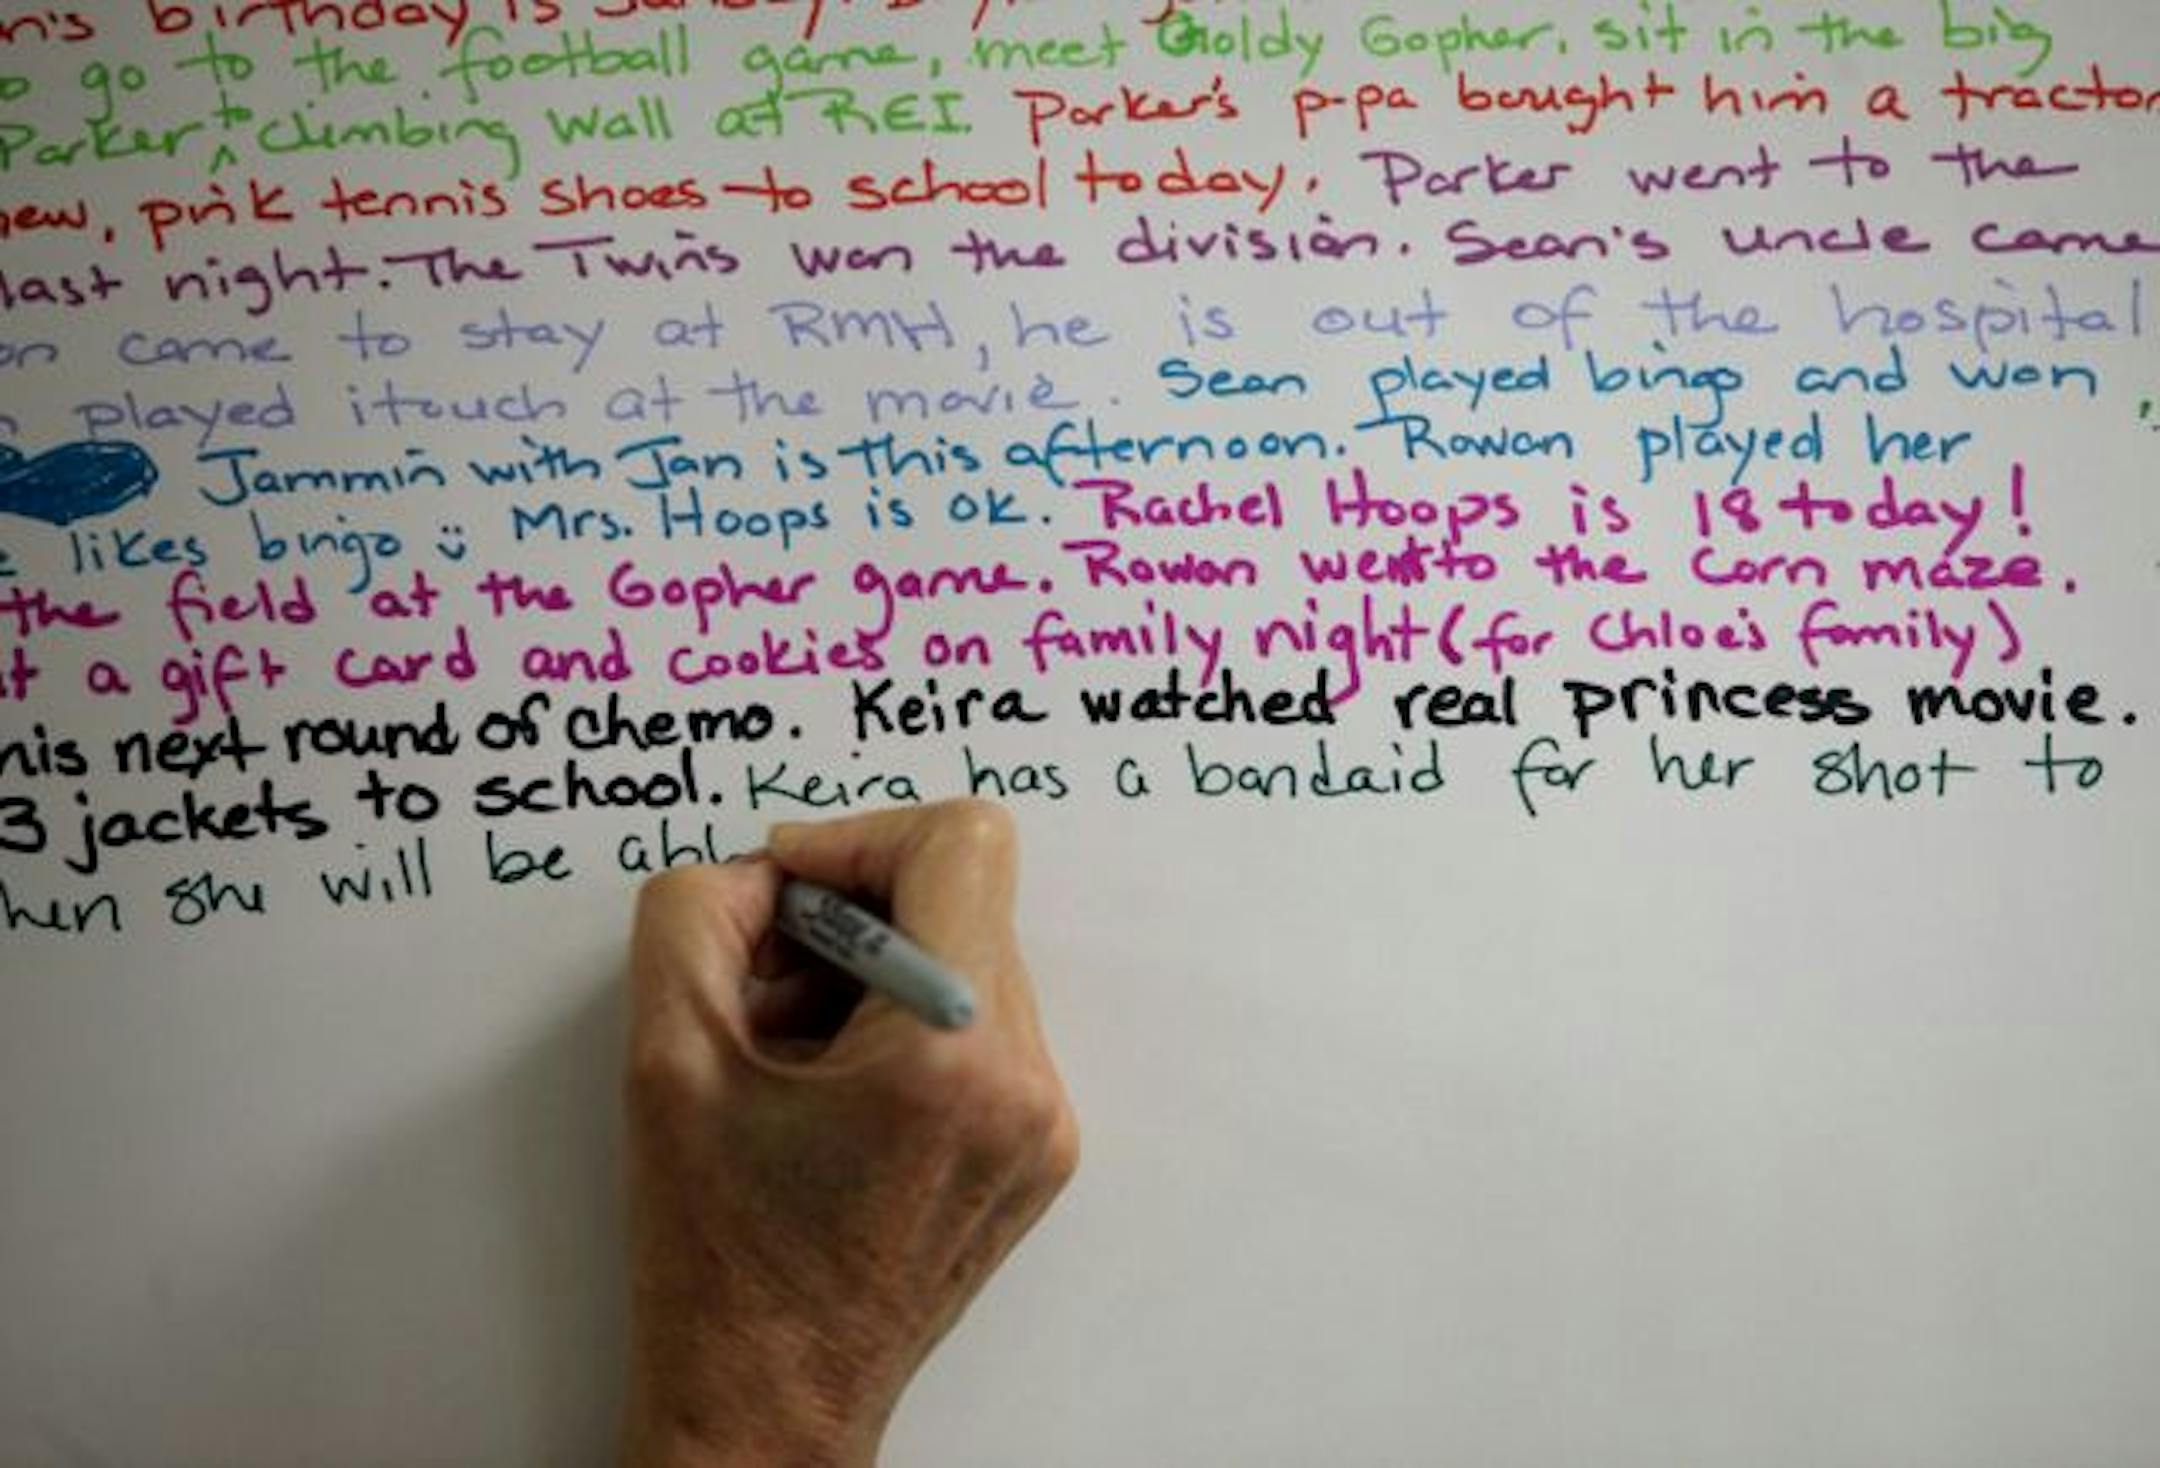 n's birthday is
go to the football game, meet Goldy Gopher, sit in the big
Parker to climbing wall at REI. Parker's p-pa bought him a tractor
new, pink tennis shoes to school today. Parker went to the
last night. The Twins won the division. Sean's uncle came
on came to stay at RMH, he is out of the hospital
played itouch at the movie. Sean played bingo and won
Jammin with Jan is this afternoon. Rowan played her
likes bingo Mrs. Hoops is ok. Rachel Hoops is 18 today!
the field at the Gopher game. Rowan went to the corn maze.
a gift card and cookies on family night (for Chloe's family)
his next round of chemo. Keira watched real princess movie.
3 jackets to school. Keira has a bandaid for her shot to
hen she will be abl
Sharpie